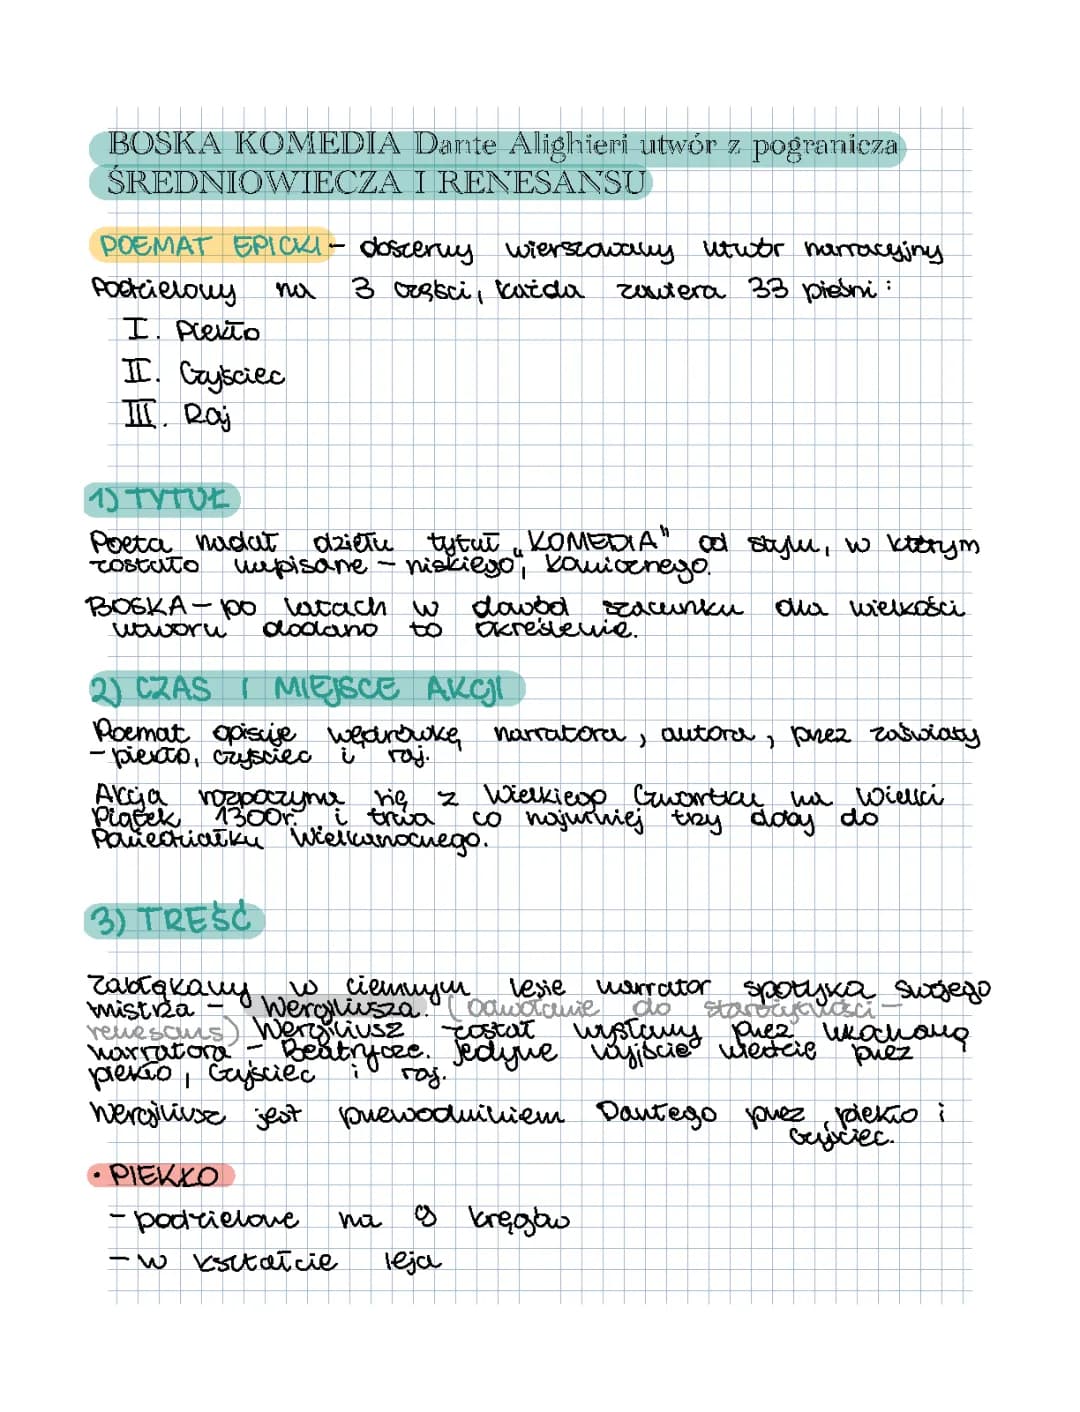 BOSKA KOMEDIA Dante Alighieri utwór z pogranicza
ŚREDNIOWIECZA I RENESANSU
POEMAT EPICKI - obszerny wierszowany utwór narracyjny
Podzielony na 3 części, każda zawiera 33 pieśni:
I. Piekło
II. Czyściec
III. Raj
1) TYTUŁ
Poeta nadał dziełu tytuł „KOMEDIA" od stylu, w którym
zostało napisane - niskiego, komicznego.
BOSKA - po latach w dowód szacunku dla wielkości
utworu dodano to określenie.
2) CZAS I MIEJSCE AKCJI
Poemat opisuje wędrówkę narratora, autora, przez zaświaty
- piekło, czyściec i raj.
Akcja rozpoczyna się z Wielkiego Czwartku na Wielki
Piątek 1300r. i trwa co najmniej trzy doby do
Poniedziałku Wielkanocnego.
3) TREŚĆ
Zabłąkany w ciemnym lesie narrator spotyka swojego
mistrza - Wergiliusza. (odwołanie do starożytności -
renesans) Wergiliusz został wysłany przez ukochaną
narratora - Beatrycze. Jedyne wyjście wiedzie przez
piekło, czyściec i raj.
Wergiliusz jest przewodnikiem Dantego przez piekło i
czyściec.
• PIEKŁO
- podzielone na 9 kręgów
- w kształcie leja